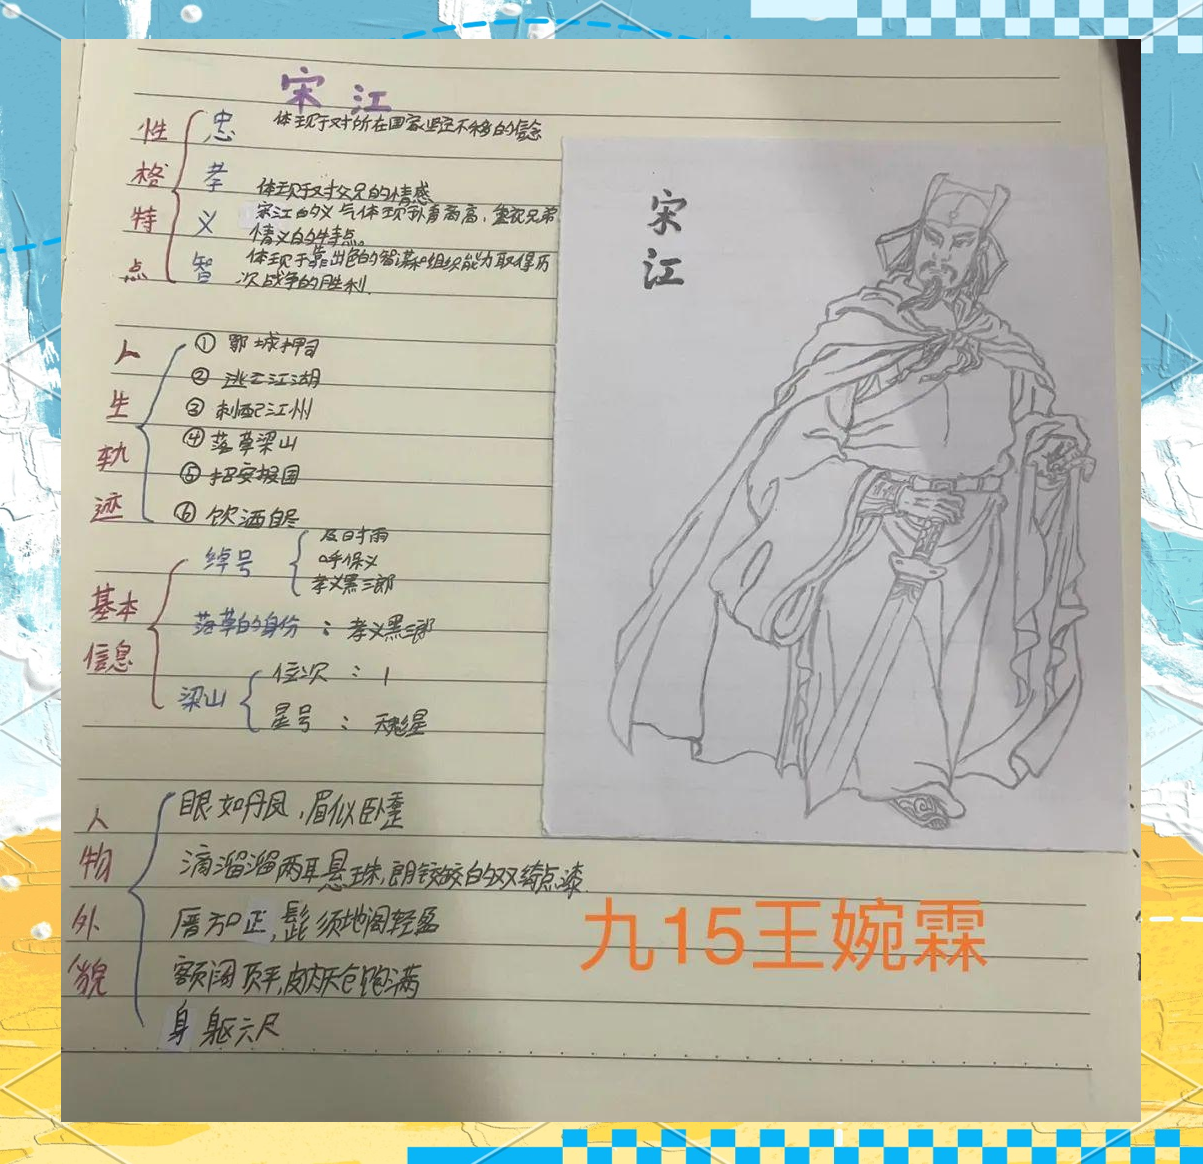 宋江
性格特点
忠 体现于对所在国家坚定不移的信念
孝 体现于对父兄的情感
义 宋江的义气体现到肯离高,重视兄弟
情义的特点。
智 体现于靠出色的智谋和组织能力取得历
次战争的胜利.
人生轨迹
① 郓城押司
② 逃亡江湖
③ 刺配江州
④ 落草梁山
⑤ 招安报国
⑥ 饮酒自尽
基本信息
绰号
及时雨
呼保义
孝义黑三郎
落草的身份 : 孝义黑三郎
梁山
位次 : 1
星号 : 天魁星
人物外貌
眼如丹凤,眉似卧蚕
滴溜溜两耳悬珠,朗皎皎的双绮点漆
唇方口正,髭须地阁轻盈
额阔顶平,皮肉天仓饱满
身躯六尺
宋
江
九15王婉霖